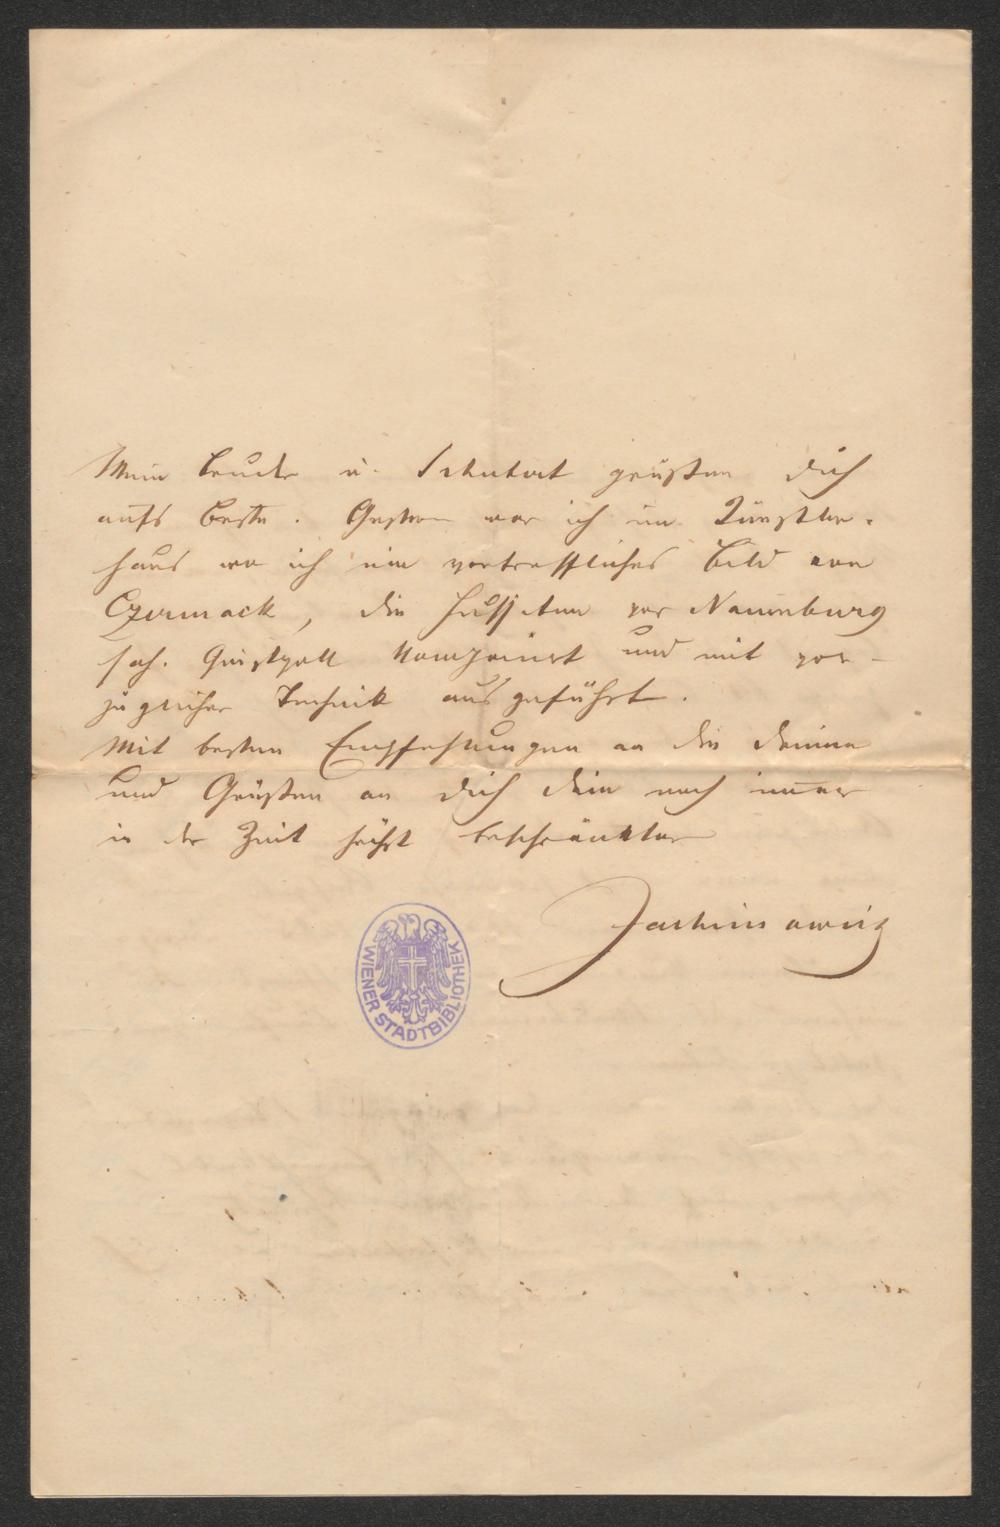 Mein Bruder u. Schubert grüßen Dich
aufs Beste. Gestern war ich im Künstler-
haus wo ich ein vortreffliches Bild von
Czermack, die Hussiten vor Naumburg
sah. Geistvoll komponirt und mit vor-
züglicher Technik ausgeführt.
Mit besten Empfehlungen an die Deinen
und Grüßen an Dich Dein noch immer
in der Zeit höchst beschränkter
Joachimowitz
WIENER STADTBIBLIOTHEK